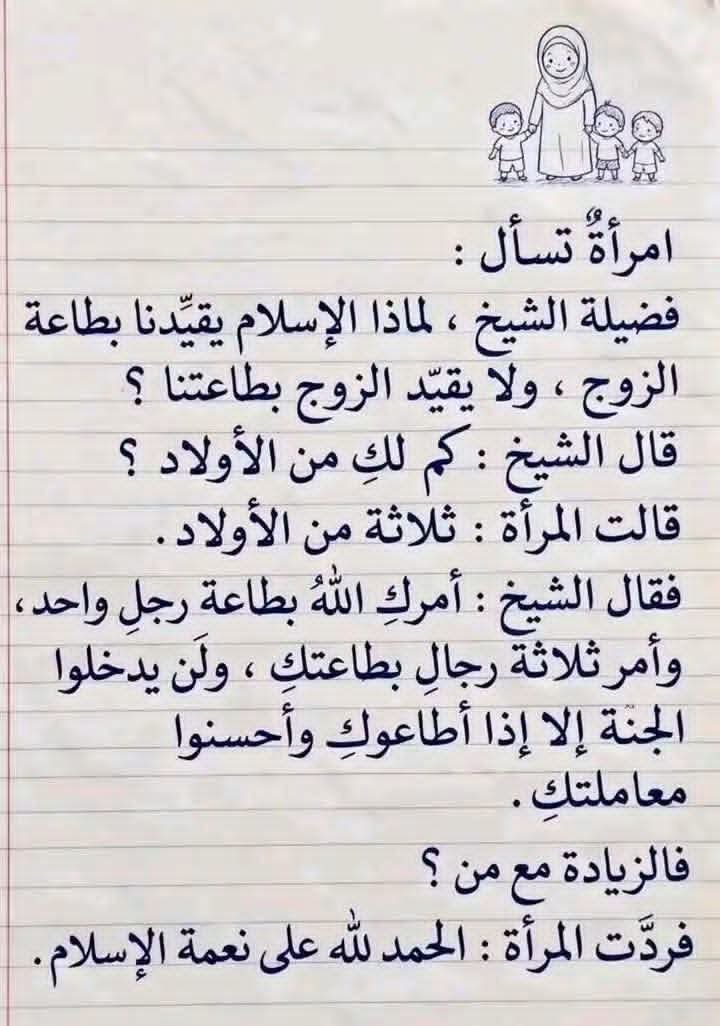 امرأةٌ تسأل :
فضيلة الشيخ ، لماذا الإسلام يقيِّدنا بطاعة
الزوج ، ولا يقيّد الزوج بطاعتنا ؟
قال الشيخ : كم لكِ من الأولاد ؟
قالت المرأة : ثلاثة من الأولاد .
فقال الشيخ : أمركِ اللهُ بطاعة رجلِ واحد ،
وأمر ثلاثة رجالِ بطاعتكِ ، ولَن يدخلوا
الجنة إلا إذا أطاعوكِ وأحسنوا
معاملتكِ .
فالزيادة مع من ؟
فردَّت المرأة : الحمد لله على نعمة الإسلام .